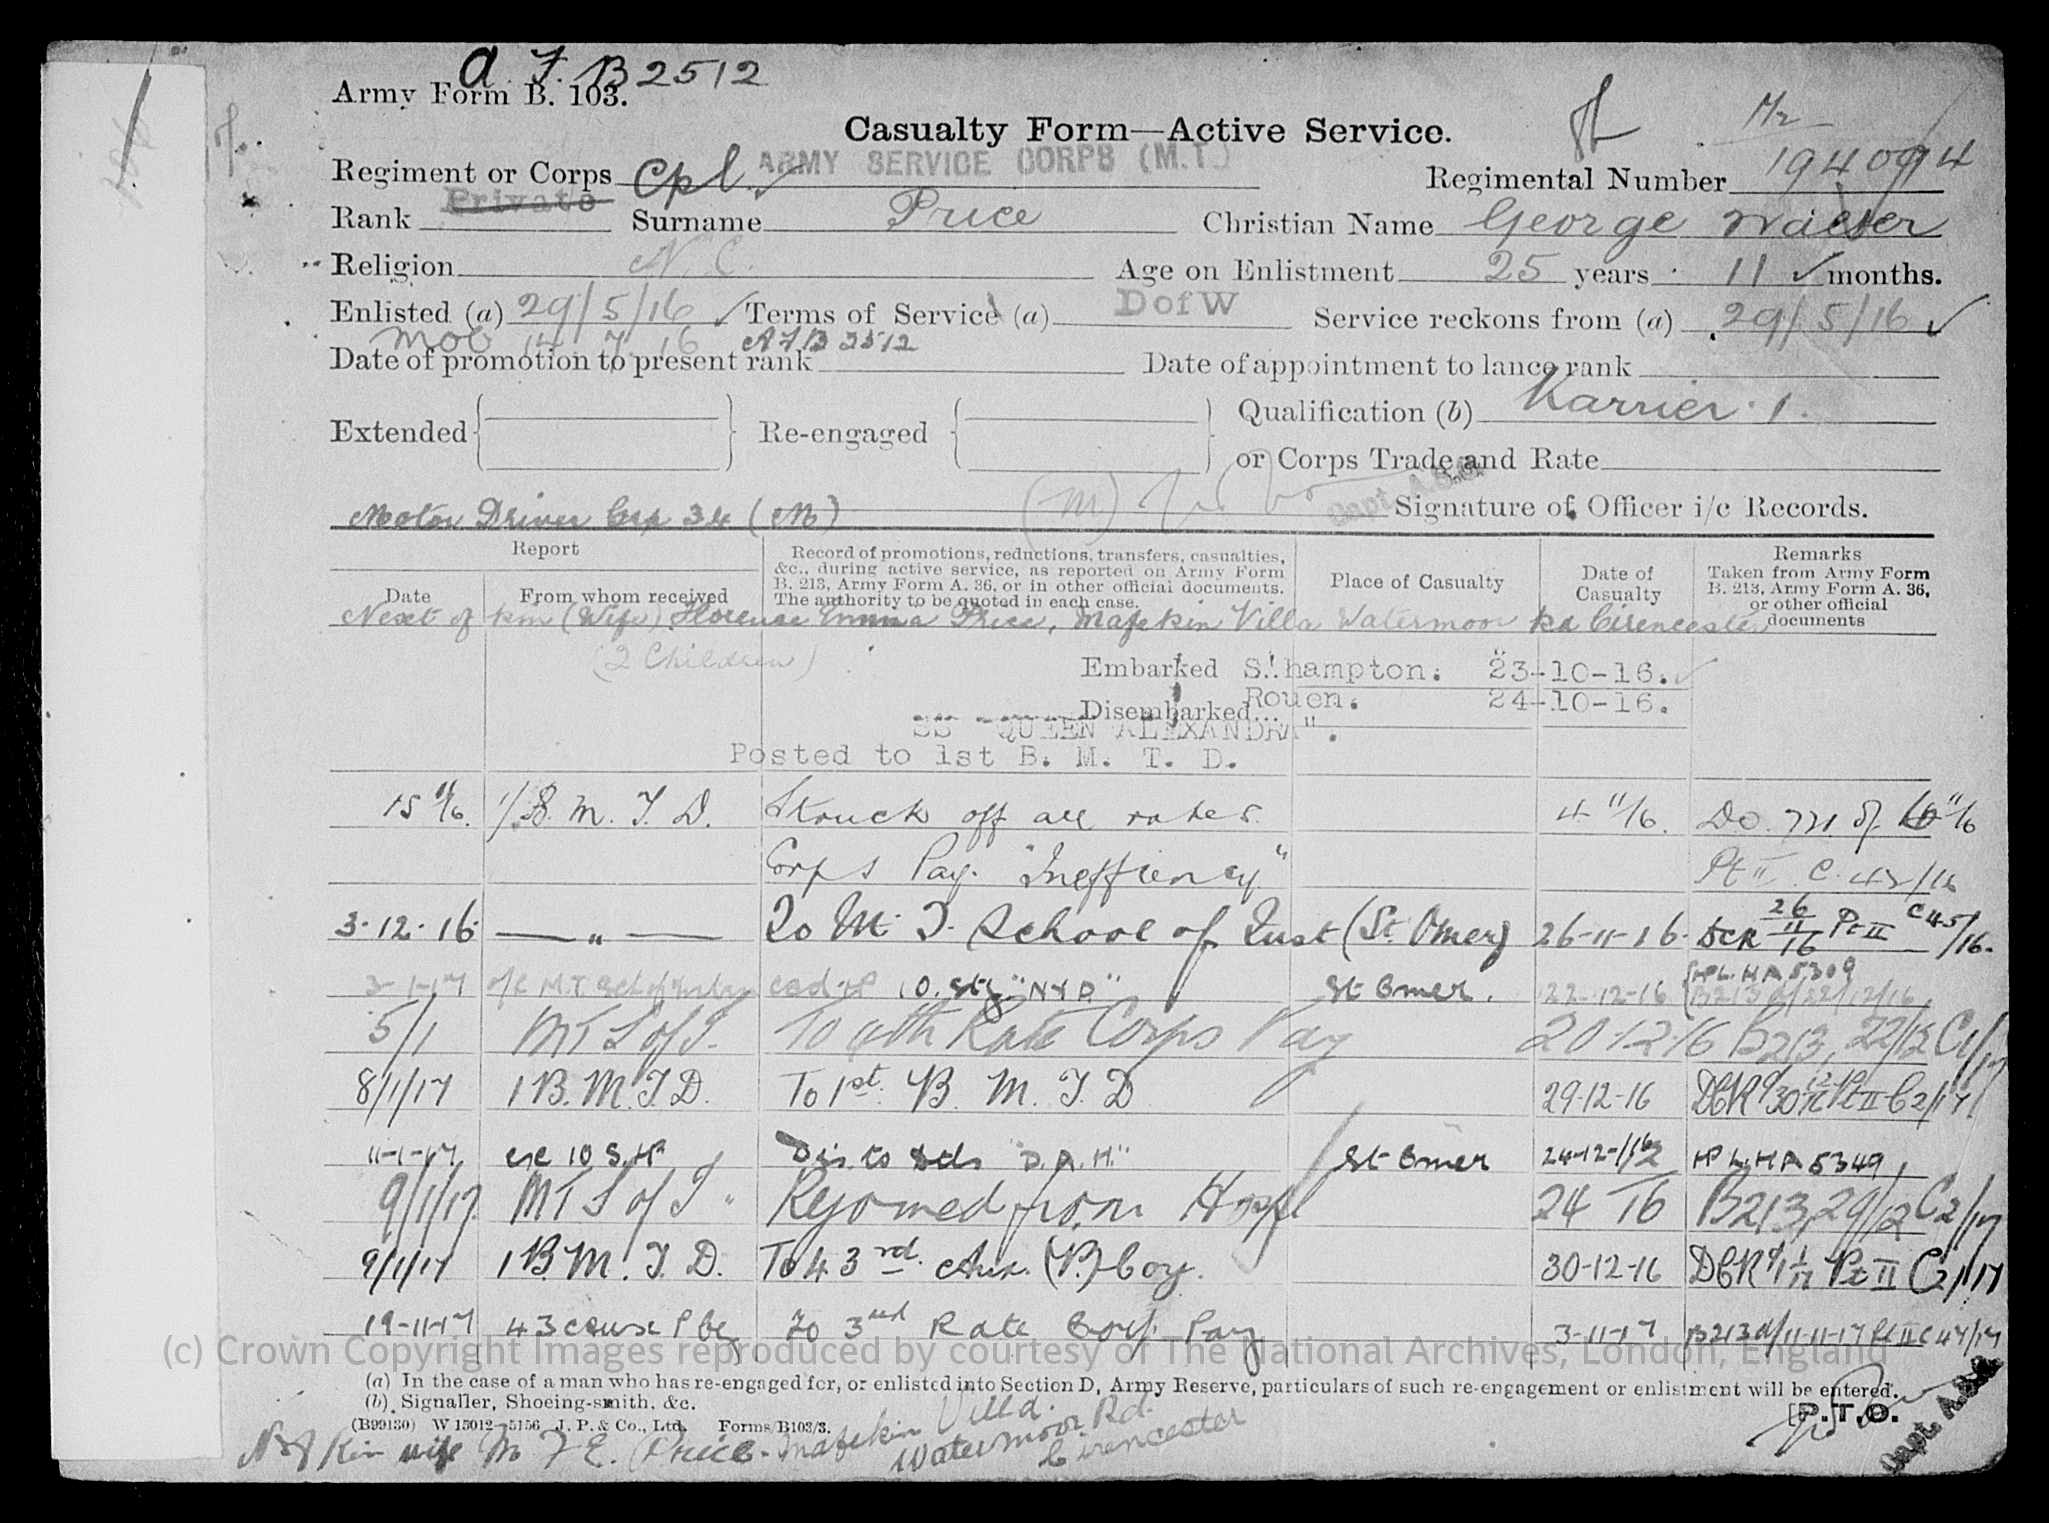 A. F. B 2512
Army Form B. 103.
Casualty Form—Active Service.
M2
Regiment or Corps Cpl. ARMY SERVICE CORPS (M.T.) Regimental Number 194094
Rank Private Surname Price Christian Name George Walter
Religion N. C. Age on Enlistment 25 years 11 months.
Enlisted (a) 29/5/16 Terms of Service (a) D of W Service reckons from (a) 29/5/16
Mob 14 7 16 AFB 2512
Date of promotion to present rank Date of appointment to lance rank
Extended Re-engaged Qualification (b) Karrier. 1.
or Corps Trade and Rate
Capt. A.S.C.
Motor Driver (M) (M) Signature of Officer i/c Records.
Report
Date From whom received
Record of promotions, reductions, transfers, casualties, &c., during active service, as reported on Army Form B. 213, Army Form A. 36, or in other official documents. The authority to be quoted in each case.
Place of Casualty
Date of Casualty
Remarks Taken from Army Form B. 213, Army Form A. 36, or other official documents
Next of kin (Wife) Florence Emma Price, Mafekin Villa Watermoor Rd Cirencester
(2 Children)
Embarked S'hampton. 23-10-16.
Disembarked... Rouen. 24-10-16.
SS "QUEEN ALEXANDRA".
Posted to 1st B. M. T. D.
15 11/16. 1/B. M. T. D. Struck off all rates 4 11/16. DO. 771 of 11/16
Corps Pay. "Ineffiency" Pt II C. 43/16
3.12.16. — " — To M. T. School of Inst (St. Omer) 26-11-16. DCR 26/11/16 Pt II C45/16.
3-1-17 o/c M.T. Sch of Instr 10. Sty. "NYD" St Omer. 22-12-16 HPL. HA 5309
B213 d/22/12/16
5/1 MT S of I. To 4th Rate Corps Pay 20.12.16 B213, 22/12 C1/17
8/1/17 1 B. M. T. D. To 1st. B. M. T. D 29-12-16 DCR 30/12/16 Pt II C2/17
11-1-17 10 S. H. Dis. to Dets "D.A.H." St Omer 24-12-16 HPL. HA 5349,
9/1/17 MT S of I " Rejoined from Hospl 24 12 16 B213, 29/12 C2/17
9/1/17 1 B. M. T. D. To 43rd. Aux. (P.) Coy. 30-12-16 DCR 1/1/17 Pt II C2/17
19-11-17 43 Aux P Coy To 3rd Rate Corps Pay 3-11-17 B213 d/11-11-17 Pt II C47/17
(c) Crown Copyright Images reproduced by courtesy of The National Archives, London, England
(a) In the case of a man who has re-engaged for, or enlisted into Section D, Army Reserve, particulars of such re-engagement or enlistment will be entered.
(b) Signaller, Shoeing-smith, &c.
[P.T.O.
(B99130) W 15012—5156 J. P. & Co., Ltd. Forms/B103/3.
Capt. A.S.C.
Nxt Kin wife Mrs F E. Price. Mafekin Villa.
Watermoor Rd.
Cirencester